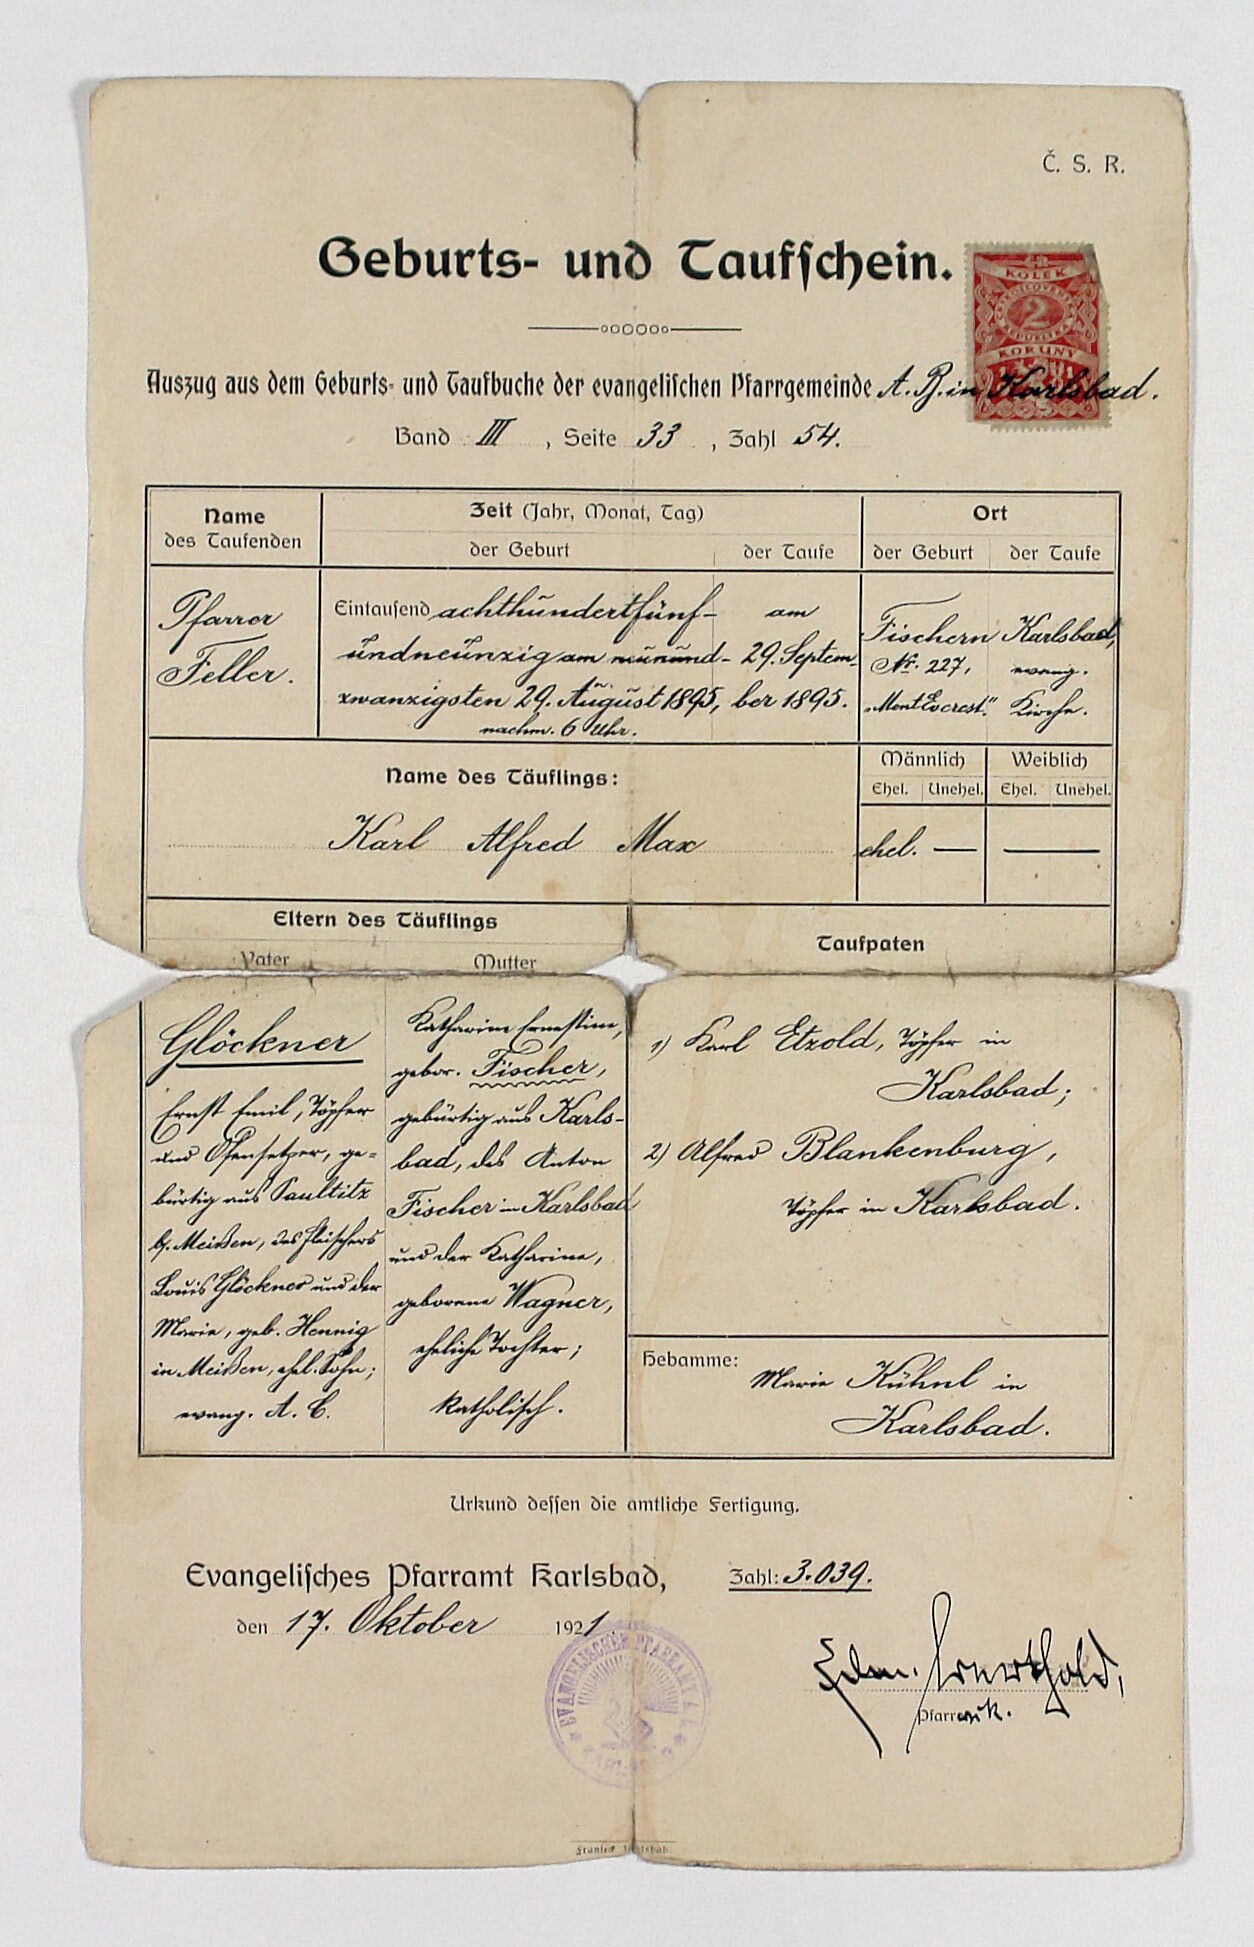 Č. S. R.
Geburts- und Taufschein.
KOLEK
2
KORUNY
Auszug aus dem Geburts- und Taufbuche der evangelischen Pfarrgemeinde A. B. in Karlsbad.
Band III, Seite 33, Zahl 54.
Name
des Taufenden
Zeit (Jahr, Monat, Tag)
der Geburt
der Taufe
Ort
der Geburt
der Taufe
Pfarrer
Feller.
Eintausend achthundertfünf-
undneunzig am neunund-
zwanzigsten 29. August 1895,
nachm. 6 Uhr.
am
29. Septem-
ber 1895.
Fischern
Nr. 227,
„Mont Everest."
Karlsbad,
evang.
Kirche.
Name des Täuflings:
Karl Alfred Max
Männlich
Weiblich
Ehel. Unehel. Ehel. Unehel.
ehel. — —
Eltern des Täuflings
Vater
Mutter
Taufpaten
Glöckner
Ernst Emil, Töpfer
und Ofensetzer, ge-
bürtig aus Paultitz
b. Meißen, des Fleischers
Louis Glöckner und der
Marie, geb. Hennig
in Meißen, ehel. Sohn;
evang. A. C.
Katharina Ernestine,
gebor. Fischer,
gebürtig aus Karls-
bad, des Anton
Fischer in Karlsbad
und der Katharine,
geborene Wagner,
eheliche Tochter;
katholisch.
1) Karl Etzold, Töpfer in
Karlsbad;
2) Alfred Blankenburg,
Töpfer in Karlsbad.
Hebamme:
Marie Kühnl in
Karlsbad.
Urkund dessen die amtliche Fertigung.
Evangelisches Pfarramt Karlsbad,
den 17. Oktober 1921.
Zahl: 3.039.
EVANGELISCHES PFARRAMT A. B.
KARLSBAD
Edm.
Pfarrvik.